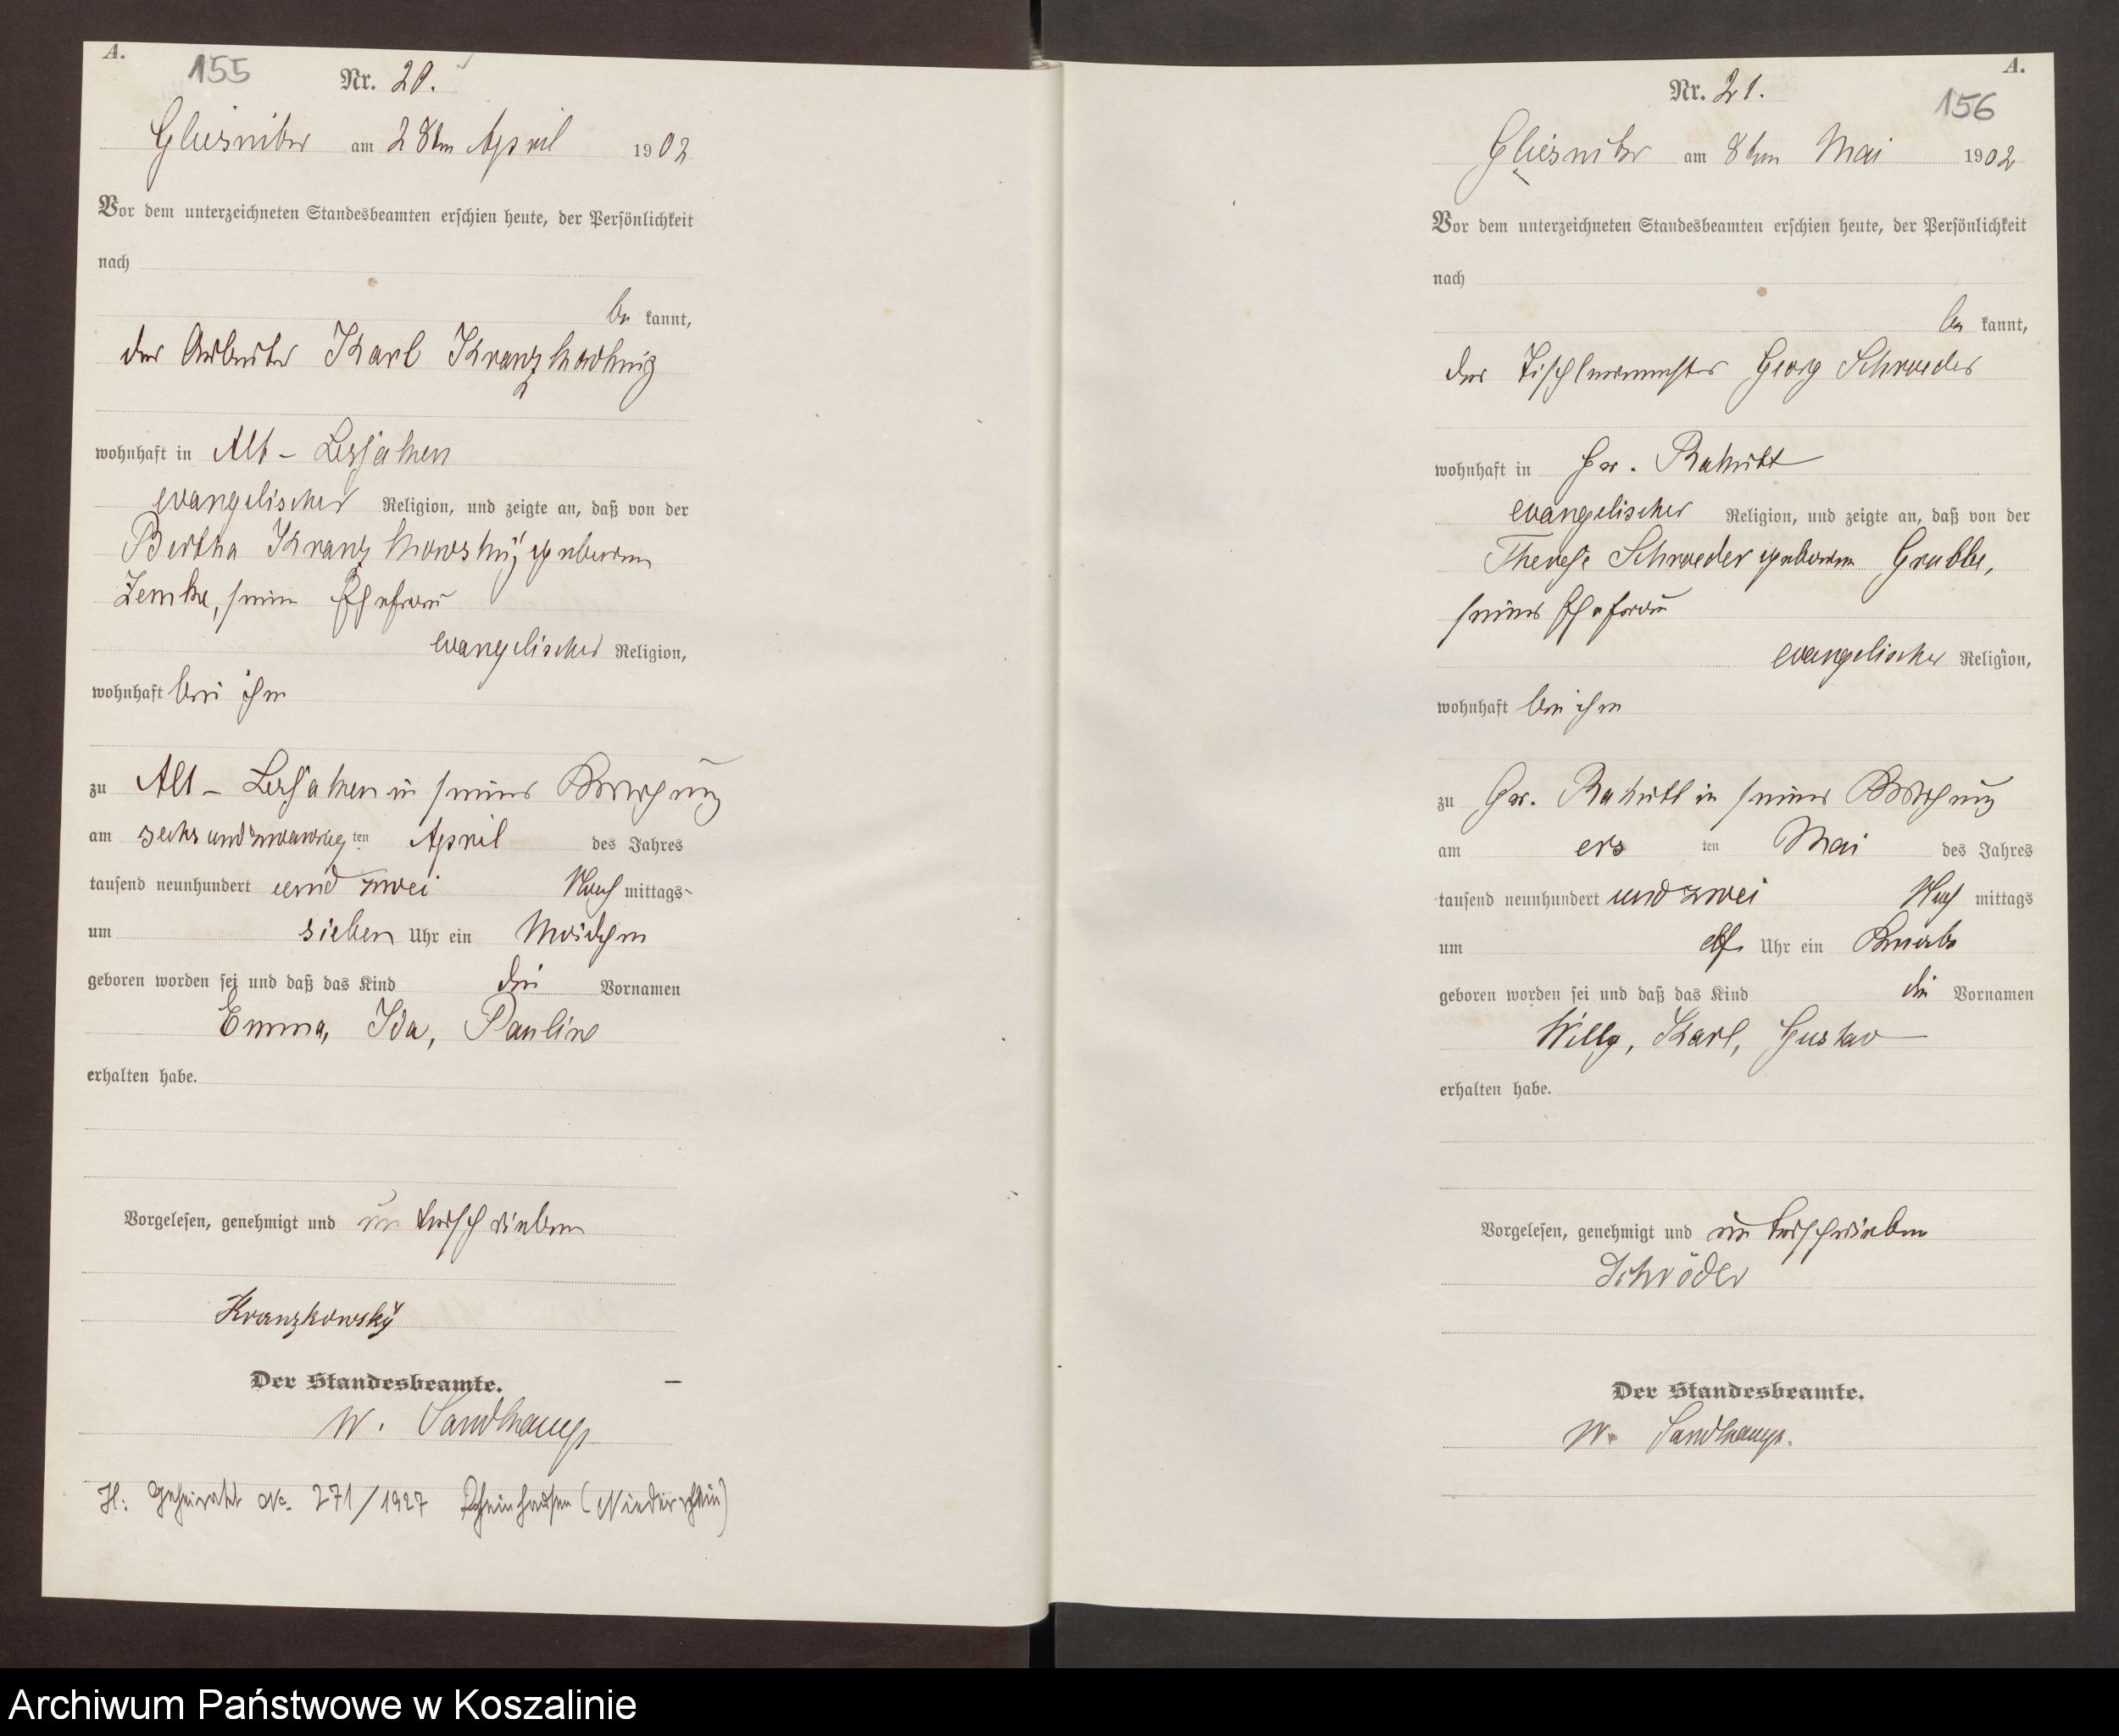 A.
155
Nr. 20.
Gliesnitz am 28ten April 1902
Vor dem unterzeichneten Standesbeamten erschien heute, der Persönlichkeit
nach
be kannt,
der Arbeiter Karl
wohnhaft in Alt-
evangelischer Religion, und zeigte an, daß von der
Bertha Kranzkowský geborenen
Zemke, seiner Ehefrau
evangelischer Religion,
wohnhaft bei ihm
zu Alt- in seiner Wohnung
am sechsundzwanzig ten April des Jahres
tausend neunhundert und zwei Nach mittags
um sieben Uhr ein Mädchen
geboren worden sei und daß das Kind die Vornamen
Emma, Ida, Pauline
erhalten habe.
Vorgelesen, genehmigt und unterschrieben
Kranzkowský
Der Standesbeamte.
W. Sandkamp
H: Geheiratet No. 271/1927 Rheinhausen (Niederrhein)
A.
156
Nr. 21.
Gliesnitz am 8ten Mai 1902
Vor dem unterzeichneten Standesbeamten erschien heute, der Persönlichkeit
nach
be kannt,
der Tischlermeister Georg Schroeder
wohnhaft in Gr. Rakitt
evangelischer Religion, und zeigte an, daß von der
Therese Schroeder geborenen Grubbe,
seiner Ehefrau
evangelischer Religion,
wohnhaft bei ihm
zu Gr. Rakitt in seiner Wohnung
am ers ten Mai des Jahres
tausend neunhundert und zwei Nach mittags
um elf Uhr ein Knabe
geboren worden sei und daß das Kind die Vornamen
Willy, Karl, Gustav
erhalten habe.
Vorgelesen, genehmigt und unterschrieben
Schröder
Der Standesbeamte.
W. Sandkamp.
Archiwum Państwowe w Koszalinie